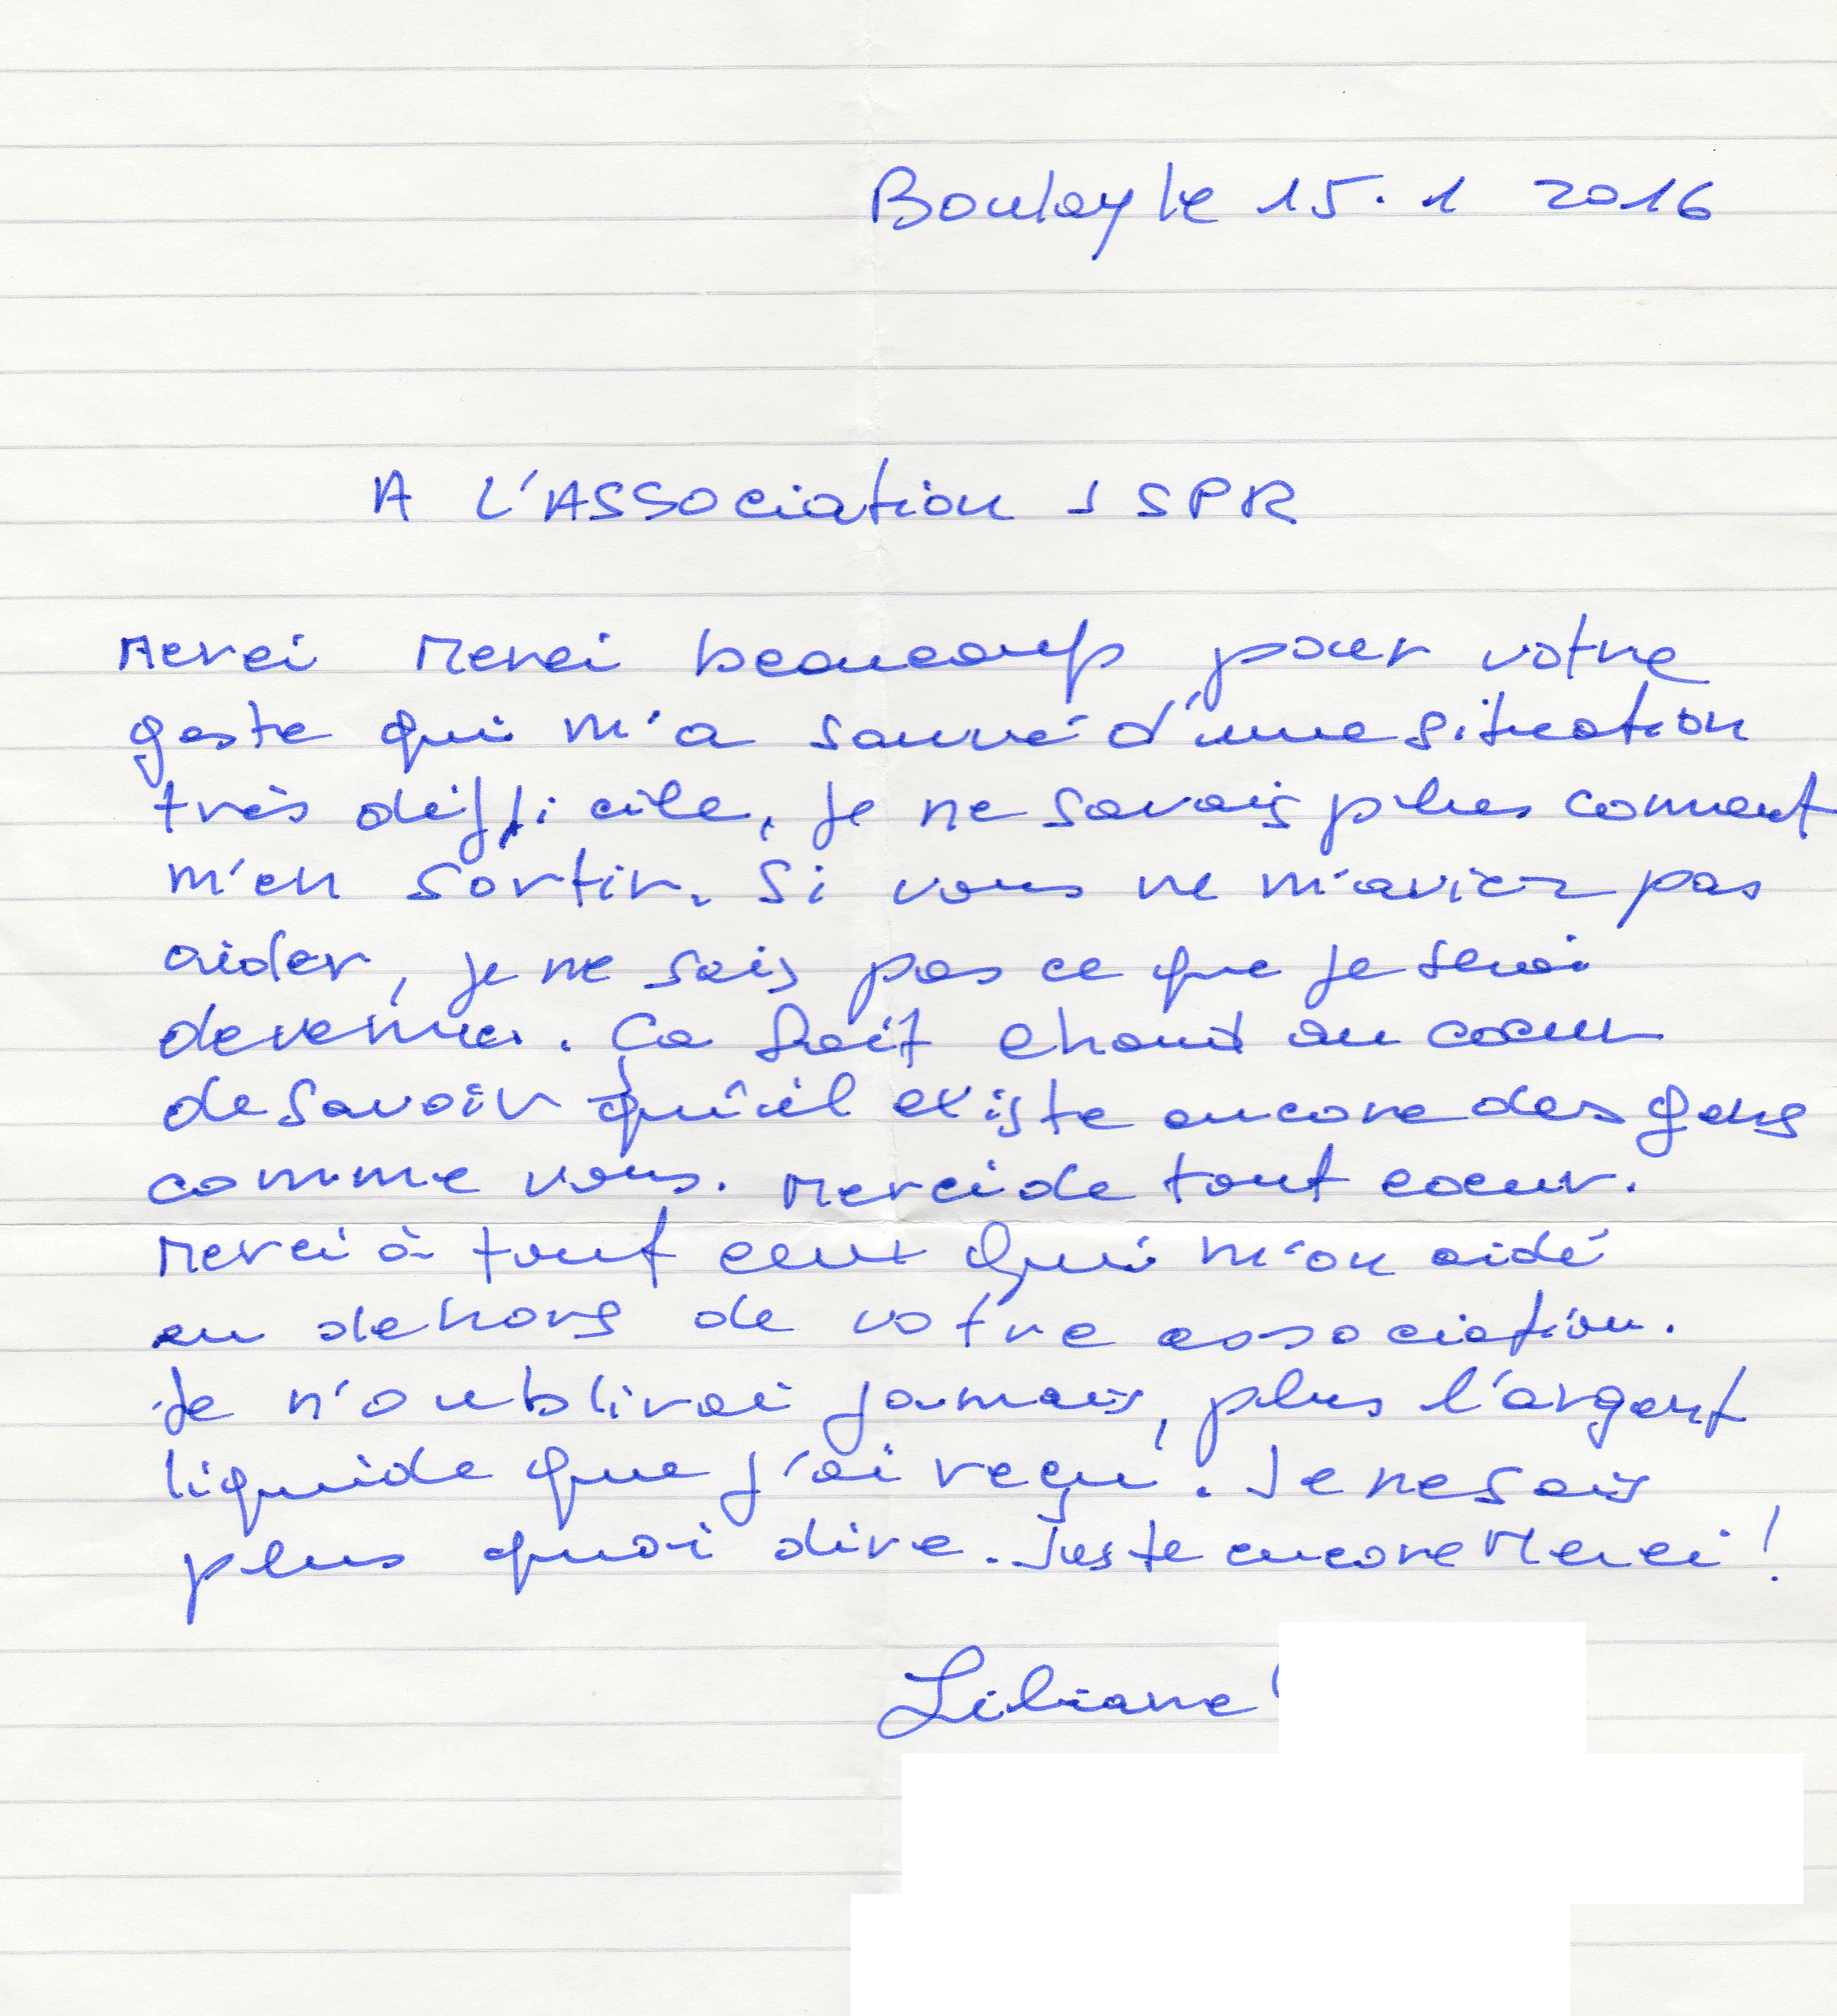 Boulay le 15.1 2016
A L'ASSOciation 1 SPR
Merci Merci beaucoup pour votre
geste qui m'a sauvé d'une situation
très difficile, je ne savais plus comment
m'en sortir. Si vous ne m'aviez pas
aider, je ne sais pas ce que je serai
devenue. Ça fait chaud au coeur
de savoir qu'il existe encore des gens
comme vous. Merci de tout coeur.
Merci à tout ceux qui m'on aidé
en dehors de votre association.
Je n'oublirai jamais, plus l'argent
liquide que j'ai reçu. Je ne sais
plus quoi dire. Juste encore Merci!
Liliane